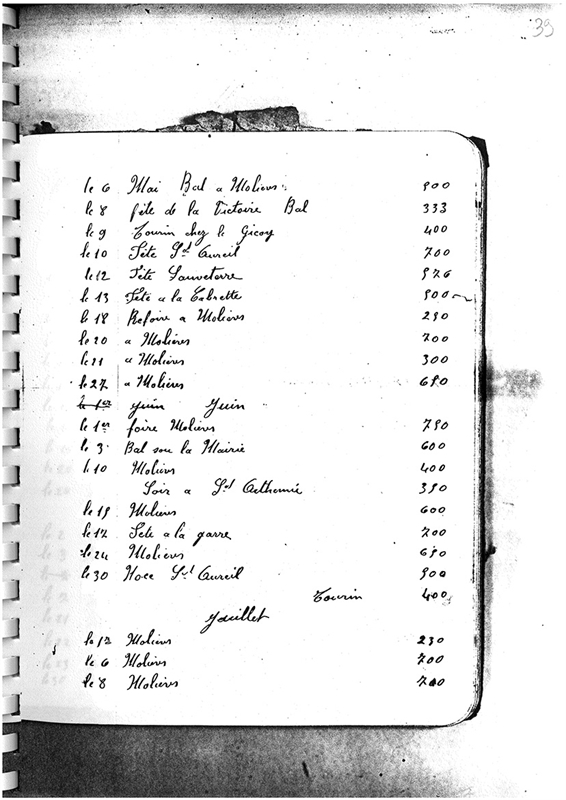 39
le 6 Mai Bal a Molières 900
le 8 fête de la Victoire Bal 333
le 9 Tourin chez le Gicou 400
le 10 Fête St Cureil 700
le 12 Fête Sauveterre 976
le 13 Fête a la Cabrette 900
le 18 Refoire a Molières 290
le 20 a Molières 700
le 21 a Molières 300
le 27 a Molières 690
le 1er juin Juin
le 1er foire Molières 790
le 3 Bal sou la Mairie 600
le 10 Molières 400
Soir a St 390
le 15 Molières 600
le 17 Fete a la garre 700
le 24 Molières 690
le 30 Noce St Cureil 900
Tourin 400
Jouillet
le 1er Molières 230
le 6 Molières 700
le 8 Molières 700